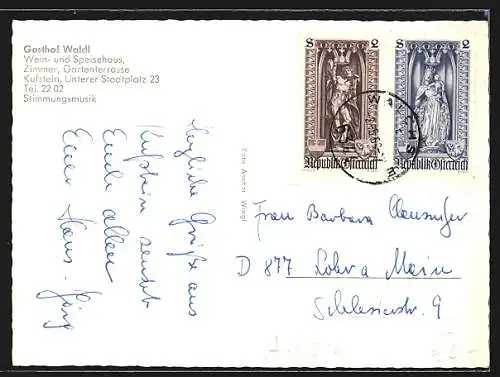 Gasthof Waldl
Wein- und Speisehaus,
Zimmer, Gartenterrasse
Kufstein, Unterer Stadtplatz 23
Tel. 22 02
Stimmungsmusik
S 2
Republik Österreich
S 2
Republik Österreich
Herzliche Grüße aus
Kufstein sendet
Euch allen
Euer Hans-Jörg
Foto Angerer Wörgl
Frau Barbara
D 877 Lohr a Main
Schlesierstr. 9